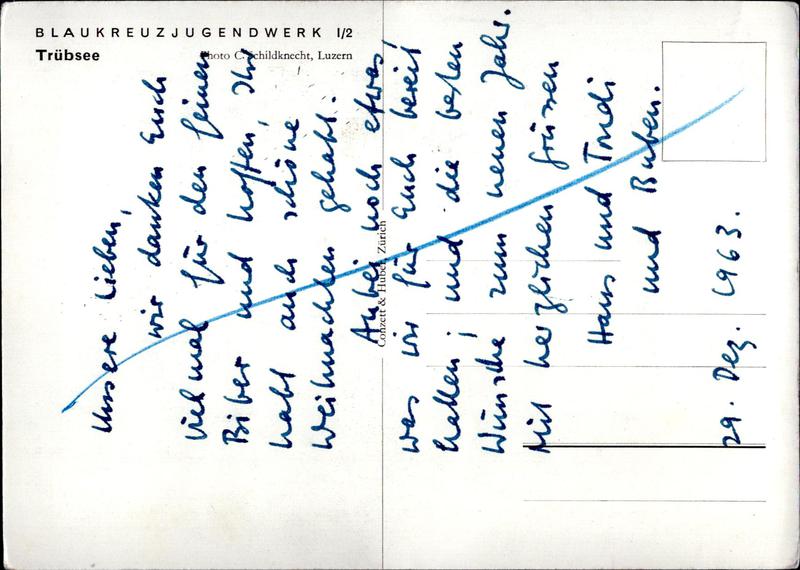 BLAUKREUZJUGENDWERK I/2
Trübsee
Photo C. Schildknecht, Luzern
Conzett & Huber, Zürich
Unsere Lieben,
wir danken Euch
vielmal für den feinen
Biber und hoffen, Ihr
habt auch schöne
Weihnachten gehabt.
Anbei noch etwas
was wir für Euch bereit
hatten; und die besten
Wünsche zum neuen Jahr.
Mit herzlichen Grüssen
Hans und Trudi
und Buben.
29. Dez. 1963.